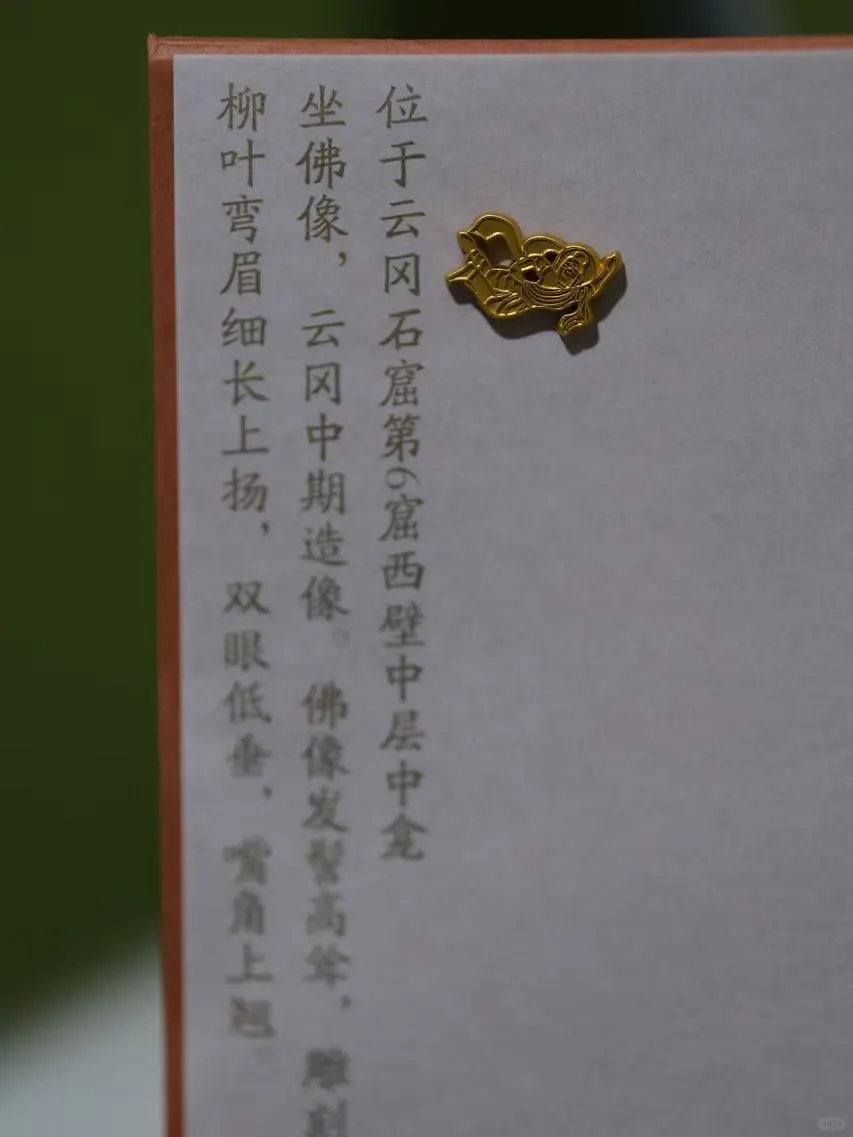 位于云冈石窟第6窟西壁中层中龛
坐佛像，云冈中期造像。佛像发髻高耸，雕刻
柳叶弯眉细长上扬，双眼低垂，嘴角上翘